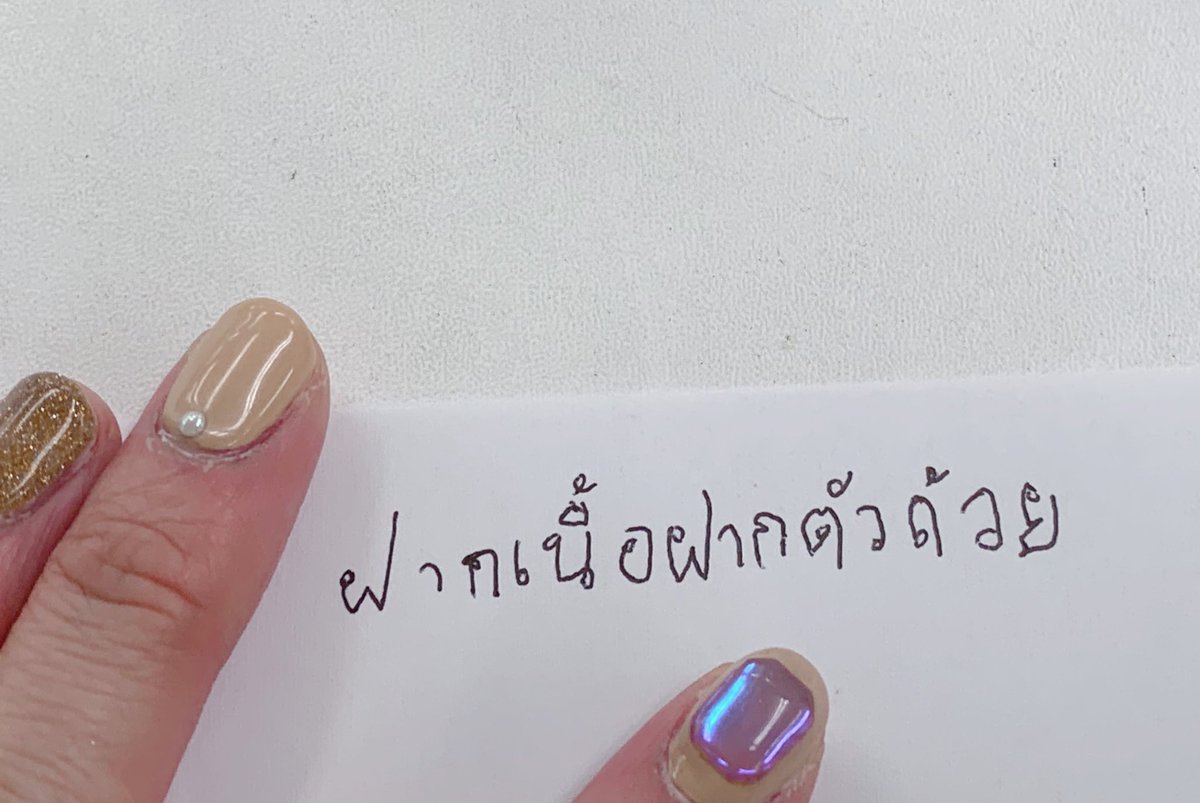 ฝากเนื้อฝากตัวด้วย